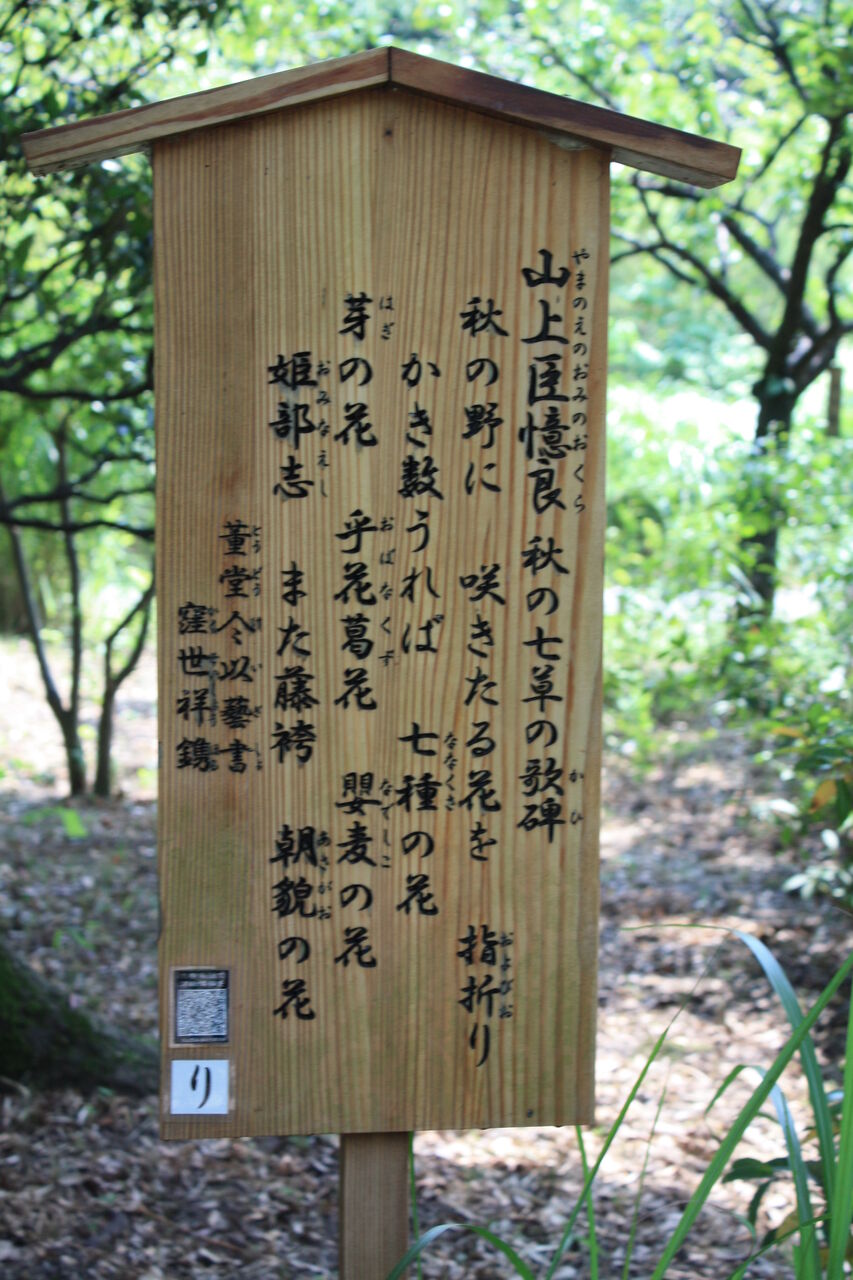 山上臣憶良 秋の七草の歌碑
やまのえのおみのおくら かひ
秋の野に 咲きたる花を 指折り
およびお
かき数うれば 七種の花
ななくさ
芽の花 乎花葛花 嬰麦の花
はぎ おばなくず なでしこ
姫部志 また藤袴 朝貌の花
おみなえし あさがお
董堂仝以藝書
窪世祥鐫
り